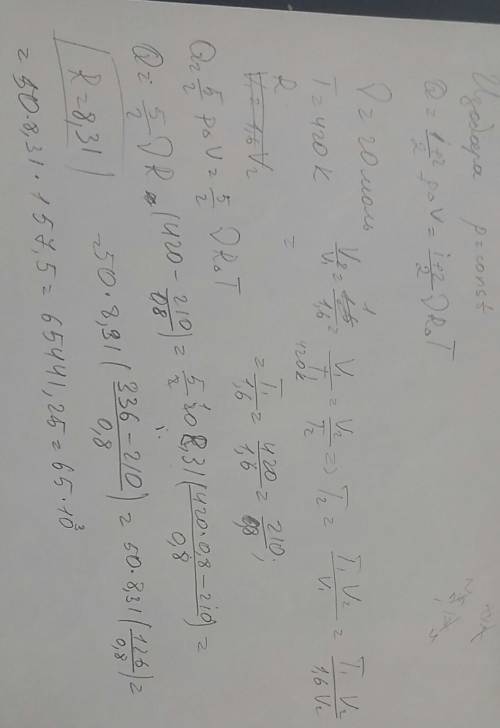 Изобара p=const
Q = i+2/2 pΔV = i+2/2 νRΔT
ν = 20 моль V₂/V₁ = 1/1,6 = V₁/T₁ = V₂/T₂ => T₂ = T₁V₂/V₁ = T₁V₂/1,6V₂
T = 420 K 420K
R = = T₁/1,6 = 420/1,6 = 210/0,8;
V₁ = 1,6V₂
Q = 5/2 pΔV = 5/2 νRΔT
Q = 5/2 νR (420 - 210/0,8) = 5/2 · 20 · 8,31 (420·0,8-210/0,8) =
R = 8,31 =50·8,31 (336-210/0,8) = 50·8,31 (126/0,8) =
= 50·8,31·157,5 = 65441,25 = 65·10³